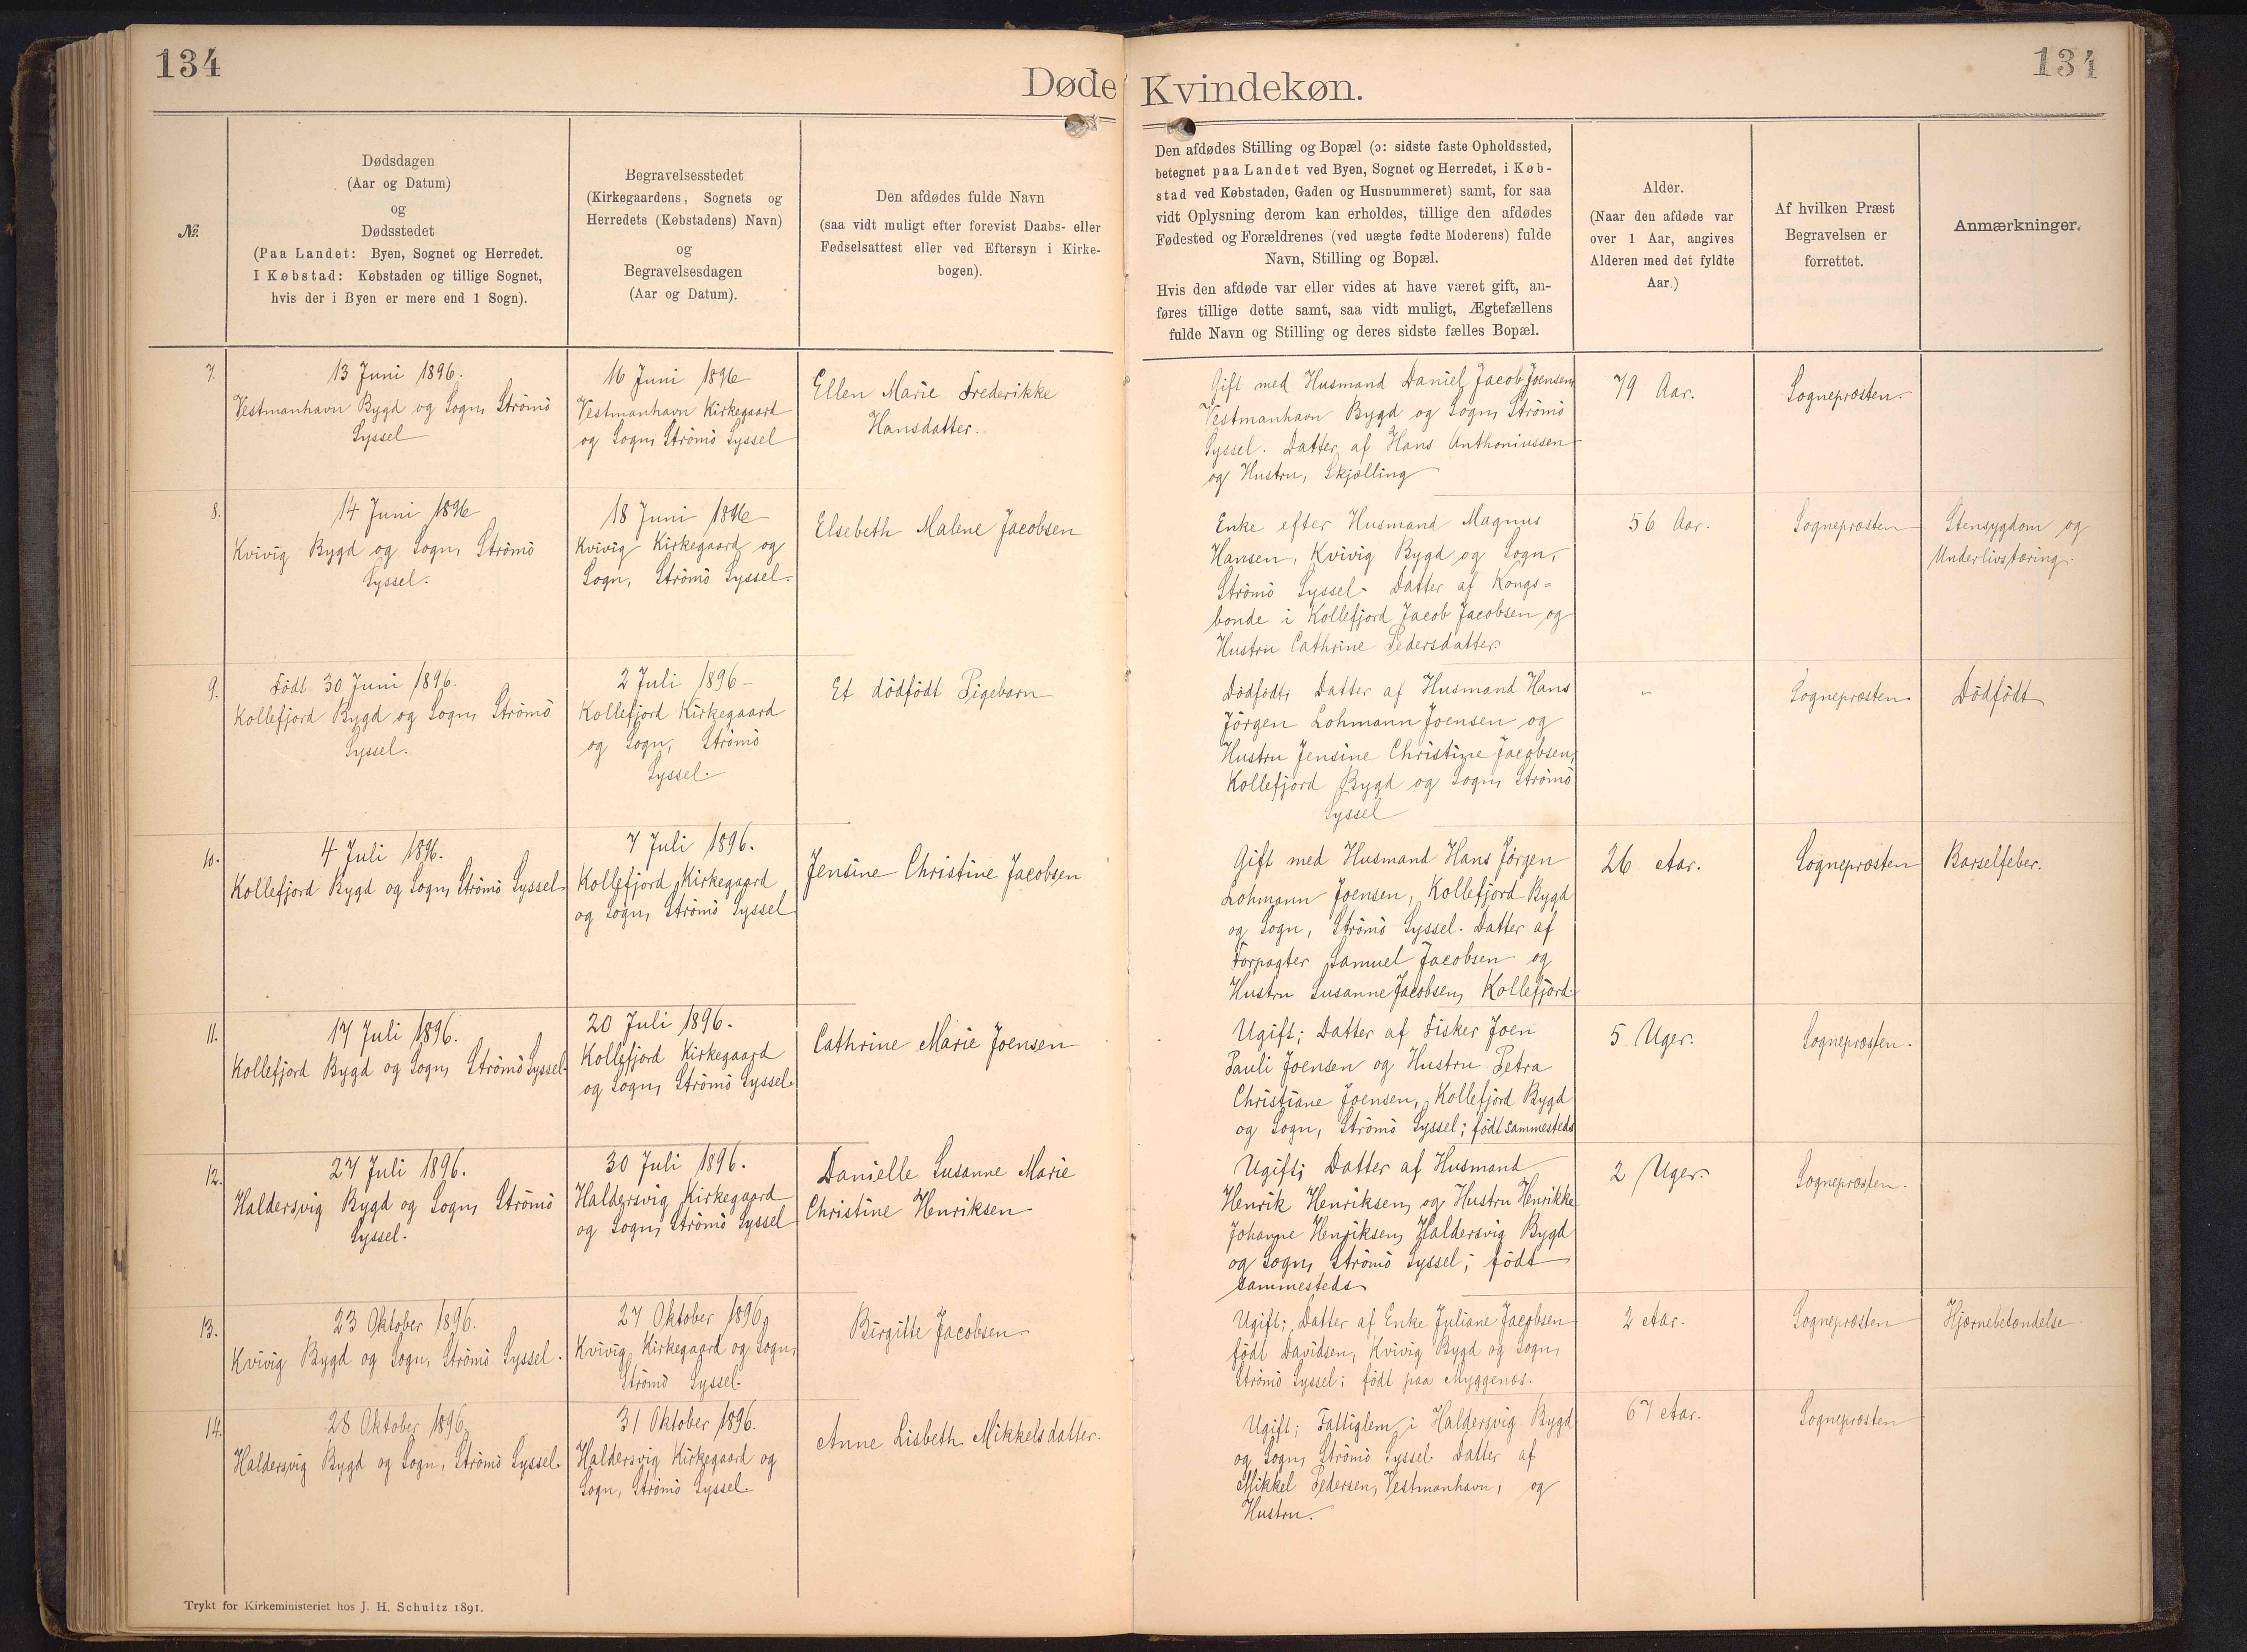 134
134
Døde Kvindekøn.
№.
Dødsdagen
(Aar og Datum)
og
Dødsstedet
(Paa Landet: Byen, Sognet og Herredet.
I Købstad: Købstaden og tillige Sognet,
hvis der i Byen er mere end 1 Sogn).
Begravelsesstedet
(Kirkegaardens, Sognets og
Herredets (Købstadens) Navn)
og
Begravelsesdagen
(Aar og Datum).
Den afdødes fulde Navn
(saa vidt muligt efter forevist Daabs- eller
Fødselsattest eller ved Eftersyn i Kirke-
bogen).
Den afdødes Stilling og Bopæl (ɔ: sidste faste Opholdssted,
betegnet paa Landet ved Byen, Sognet og Herredet, i Køb-
stad ved Købstaden, Gaden og Husnummeret) samt, for saa
vidt Oplysning derom kan erholdes, tillige den afdødes
Fødested og Forældrenes (ved uægte fødte Moderens) fulde
Navn, Stilling og Bopæl.
Hvis den afdøde var eller vides at have været gift, an-
føres tillige dette samt, saa vidt muligt, Ægtefællens
fulde Navn og Stilling og deres sidste fælles Bopæl.
Alder.
(Naar den afdøde var
over 1 Aar, angives
Alderen med det fyldte
Aar.)
Af hvilken Præst
Begravelsen er
forrettet.
Anmærkninger.
7.
13 Juni 1896.
Vestmanhavn Bygd og Sogn, Strömö
Syssel
16 Juni 1896
Vestmanhavn Kirkegaard
og Sogn, Strömö Syssel
Ellen Marie Frederikke
Hansdatter.
Gift med Husmand Daniel Jacob Joensen,
Vestmanhavn Bygd og Sogn, Strömö
Syssel. Datter af Hans Anthoniussen
og Hustru, Skjælling
79 Aar.
Sognepræsten.
8.
14 Juni 1896
Kvivig Bygd og Sogn, Strömö
Syssel.
18 Juni 1896
Kvivig Kirkegaard og
Sogn, Strömö Syssel.
Elsebeth Malene Jacobsen
Enke efter Husmand Magnus
Hansen, Kvivig Bygd og Sogn,
Strömö Syssel. Datter af Kongs=
bonde i Kollefjord Jacob Jacobsen og
Hustru Cathrine Pedersdatter.
56 Aar.
Sognepræsten
Stensygdom og
Underlivstæring.
9.
Födt 30 Juni 1896.
Kollefjord Bygd og Sogn, Strömö
Syssel.
2 Juli 1896-
Kollefjord Kirkegaard
og Sogn, Strömö
Syssel.
Et dödfödt Pigebarn
Dödfödt; Datter af Husmand Hans
Jörgen Lohmann Joensen og
Hustru Jensine Christine Jacobsen,
Kollefjord Bygd og Sogn, Strömö
Syssel
"
Sognepræsten.
Dödfödt
10.
4 Juli 1896.
Kollefjord Bygd og Sogn, Strömö Syssel
7 Juli 1896.
Kollefjord Kirkegaard
og Sogn, Strömö Syssel
Jensine Christine Jacobsen
Gift med Husmand Hans Jörgen
Lohmann Joensen, Kollefjord Bygd
og Sogn, Strömö Syssel. Datter af
Forpagter Samuel Jacobsen og
Hustru Susanne Jacobsen, Kollefjord.
26 Aar.
Sognepræsten
Barselfeber.
11.
17 Juli 1896.
Kollefjord Bygd og Sogn, Strömö Syssel.
20 Juli 1896.
Kollefjord Kirkegaard
og Sogn, Strömö Syssel.
Cathrine Marie Joensen
Ugift; Datter af Fisker Joen
Pauli Joensen og Hustru Petra
Christiane Joensen, Kollefjord Bygd
og Sogn, Strömö Syssel; födt sammesteds
5 Uger.
Sognepræsten.
12.
27 Juli 1896.
Haldersvig Bygd og Sogn, Strömö
Syssel.
30 Juli 1896.
Haldersvig Kirkegaard
og Sogn, Strömö Syssel
Danielle Susanne Marie
Christine Henriksen
Ugift; Datter af Husmand
Henrik Henriksen, og Hustru Henrikke
Johanne Henriksen, Haldersvig Bygd
og Sogn, Strömö Syssel; födt
sammesteds
2 Uger.
Sognepræsten.
13.
23 Oktober 1896.
Kvivig Bygd og Sogn, Strömö Syssel.
27 Oktober 1896,
Kvivig Kirkegaard og Sogn,
Strömö Syssel.
Birgitte Jacobsen
Ugift; Datter af Enke Juliane Jacobsen
födt Davidsen, Kvivig Bygd og Sogn,
Strömö Syssel; födt paa Myggenæs.
2 Aar.
Sognepræsten
Hjærnebetændelse.
14.
28 Oktober 1896.
Haldersvig Bygd og Sogn, Strömö Syssel.
31 Oktober 1896.
Haldersvig Kirkegaard og
Sogn, Strömö Syssel.
Anne Lisbeth Mikkelsdatter.
Ugift; Fattiglem i Haldersvig Bygd
og Sogn, Strömö Syssel. Datter af
Mikkel Pedersen, Vestmanhavn, og
Hustru.
67 Aar.
Sognepræsten
Trykt for Kirkeministeriet hos J. H. Schultz 1891.